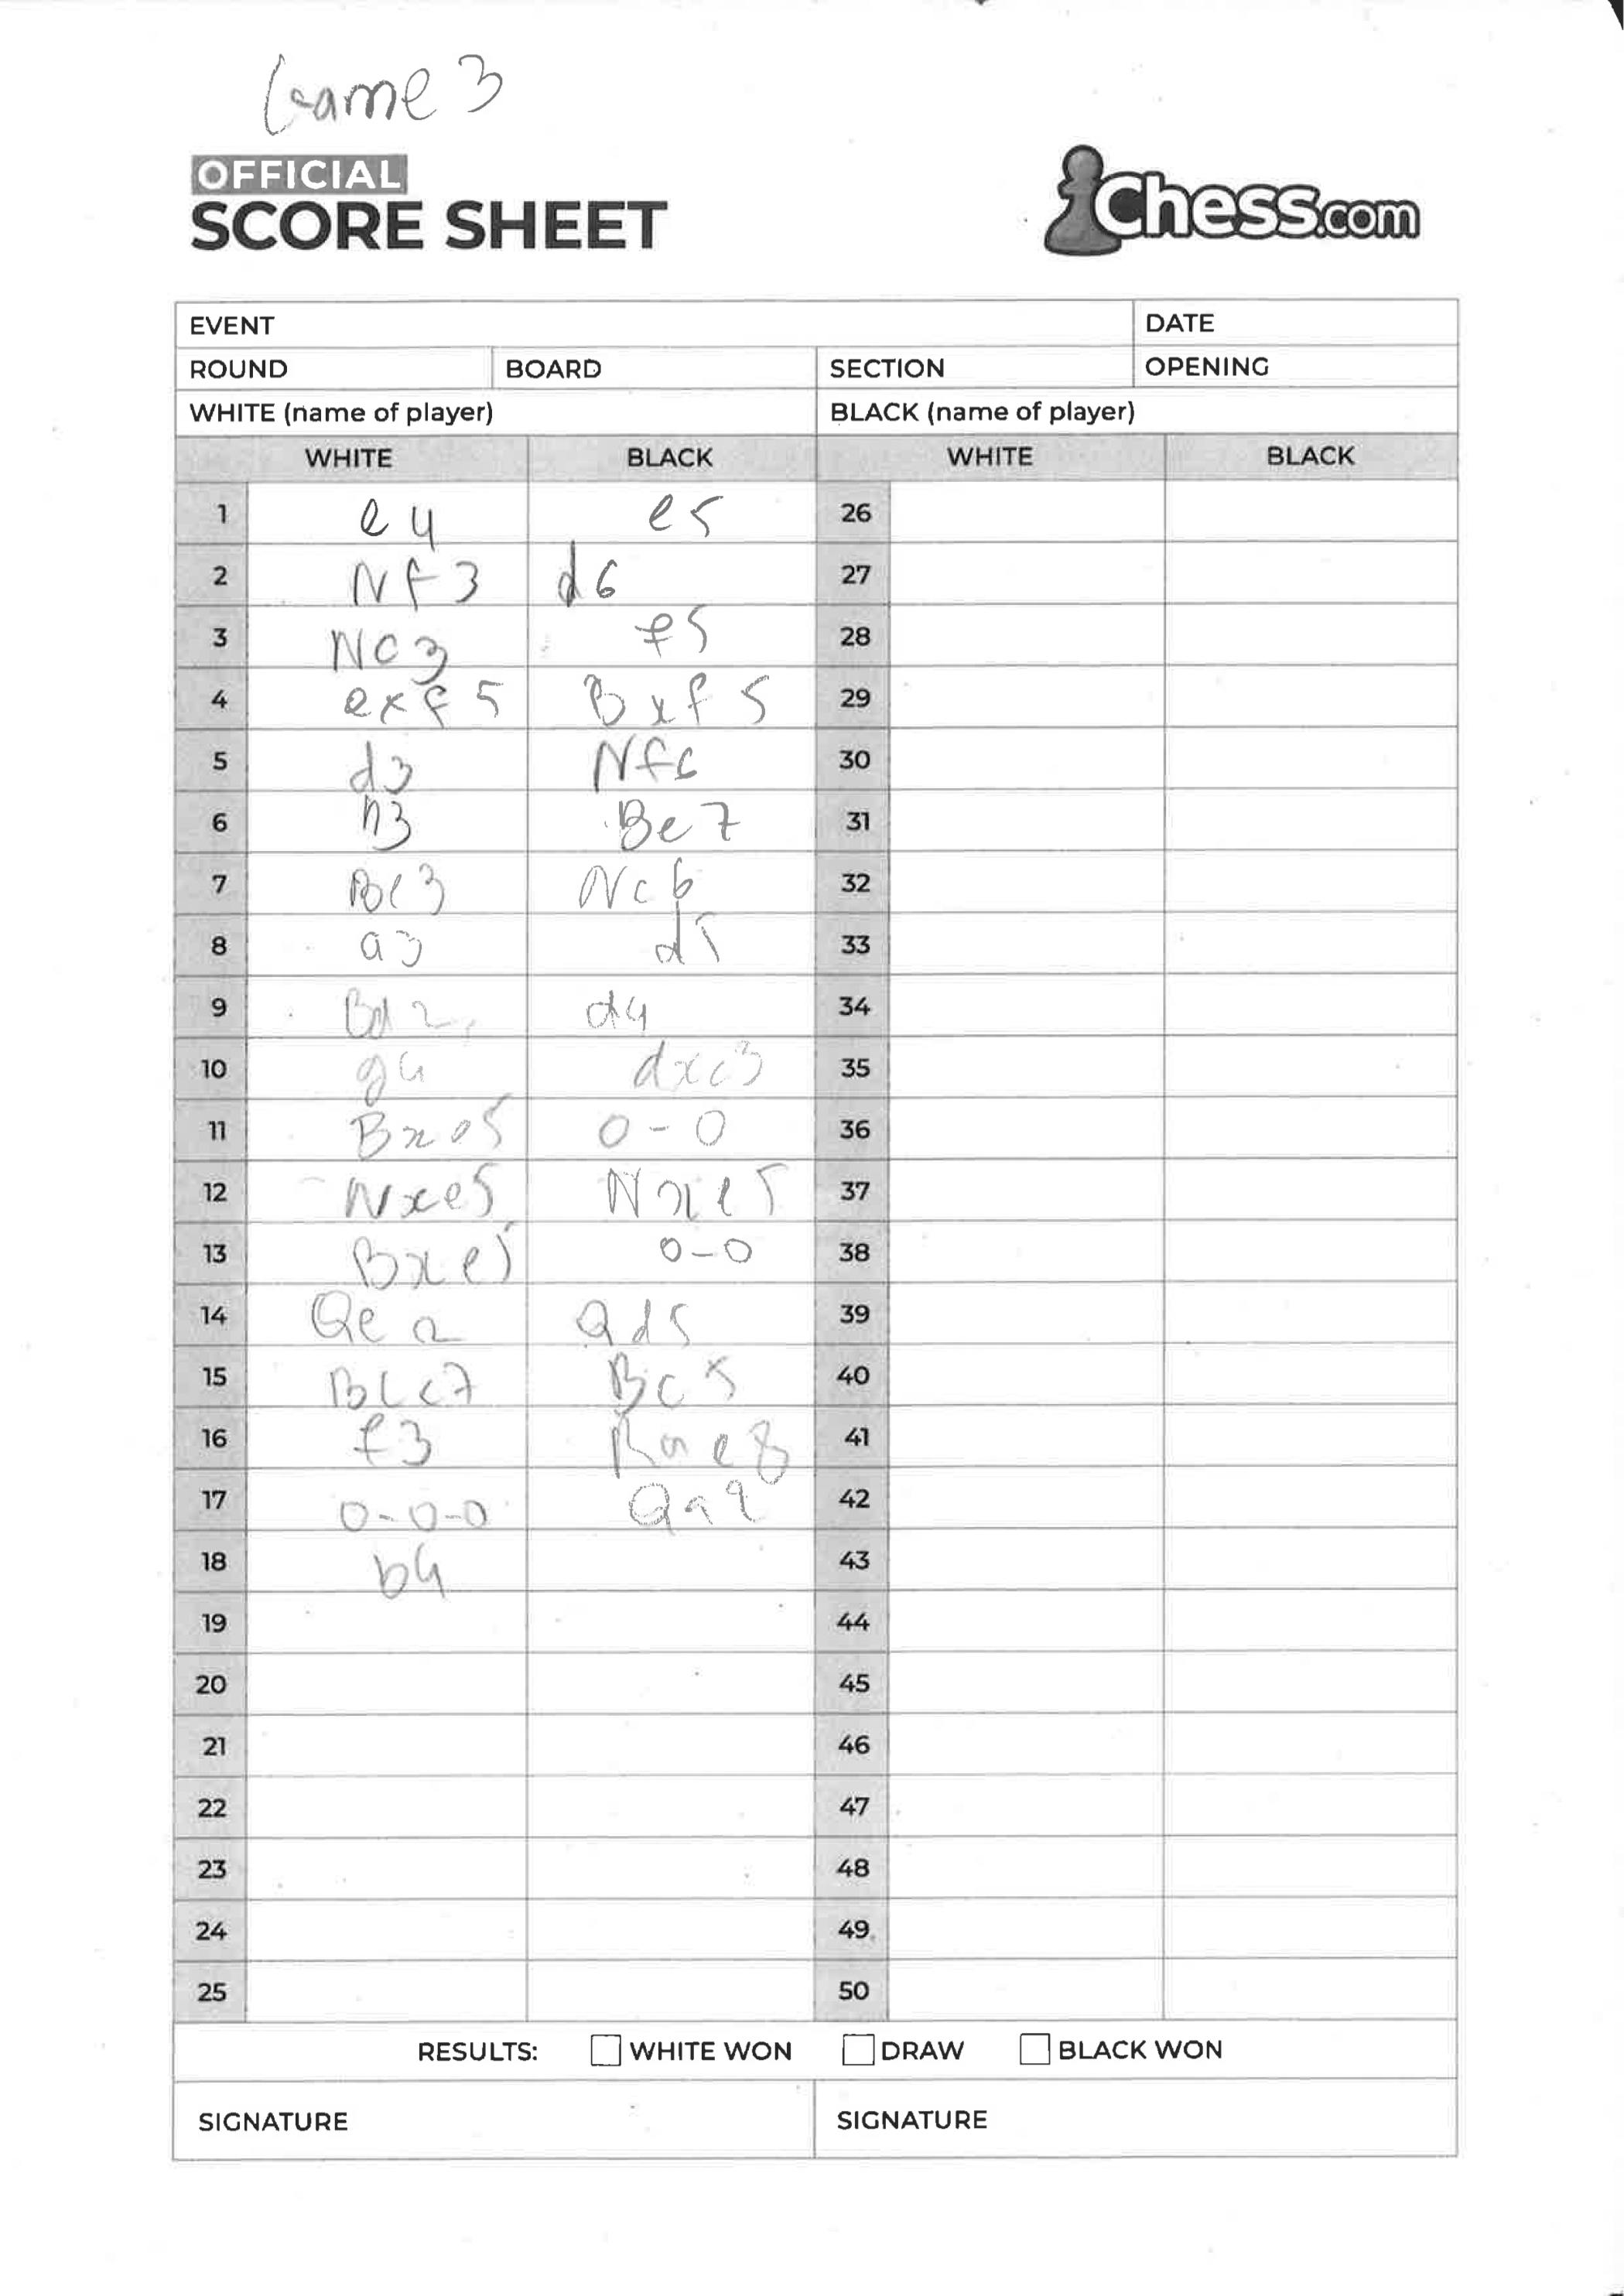 Game 3
OFFICIAL
SCORE SHEET
Chess.com
EVENT DATE
ROUND BOARD SECTION OPENING
WHITE (name of player) BLACK (name of player)
WHITE BLACK WHITE BLACK
1 e4 e5 26
2 Nf3 d6 27
3 Nc3 f5 28
4 exf5 Bxf5 29
5 d3 Nf6 30
6 h3 Be7 31
7 Be3 Nc6 32
8 a3 d5 33
9 Bd2 d4 34
10 g4 dxc3 35
11 Bxe5 0-0 36
12 Nxe5 Nxe5 37
13 Bxe5 0-0 38
14 Qe2 Qd5 39
15 Bxc7 Bc5 40
16 f3 Rae8 41
17 0-0-0 Qa2 42
18 b4 43
19 44
20 45
21 46
22 47
23 48
24 49
25 50
RESULTS: WHITE WON DRAW BLACK WON
SIGNATURE SIGNATURE